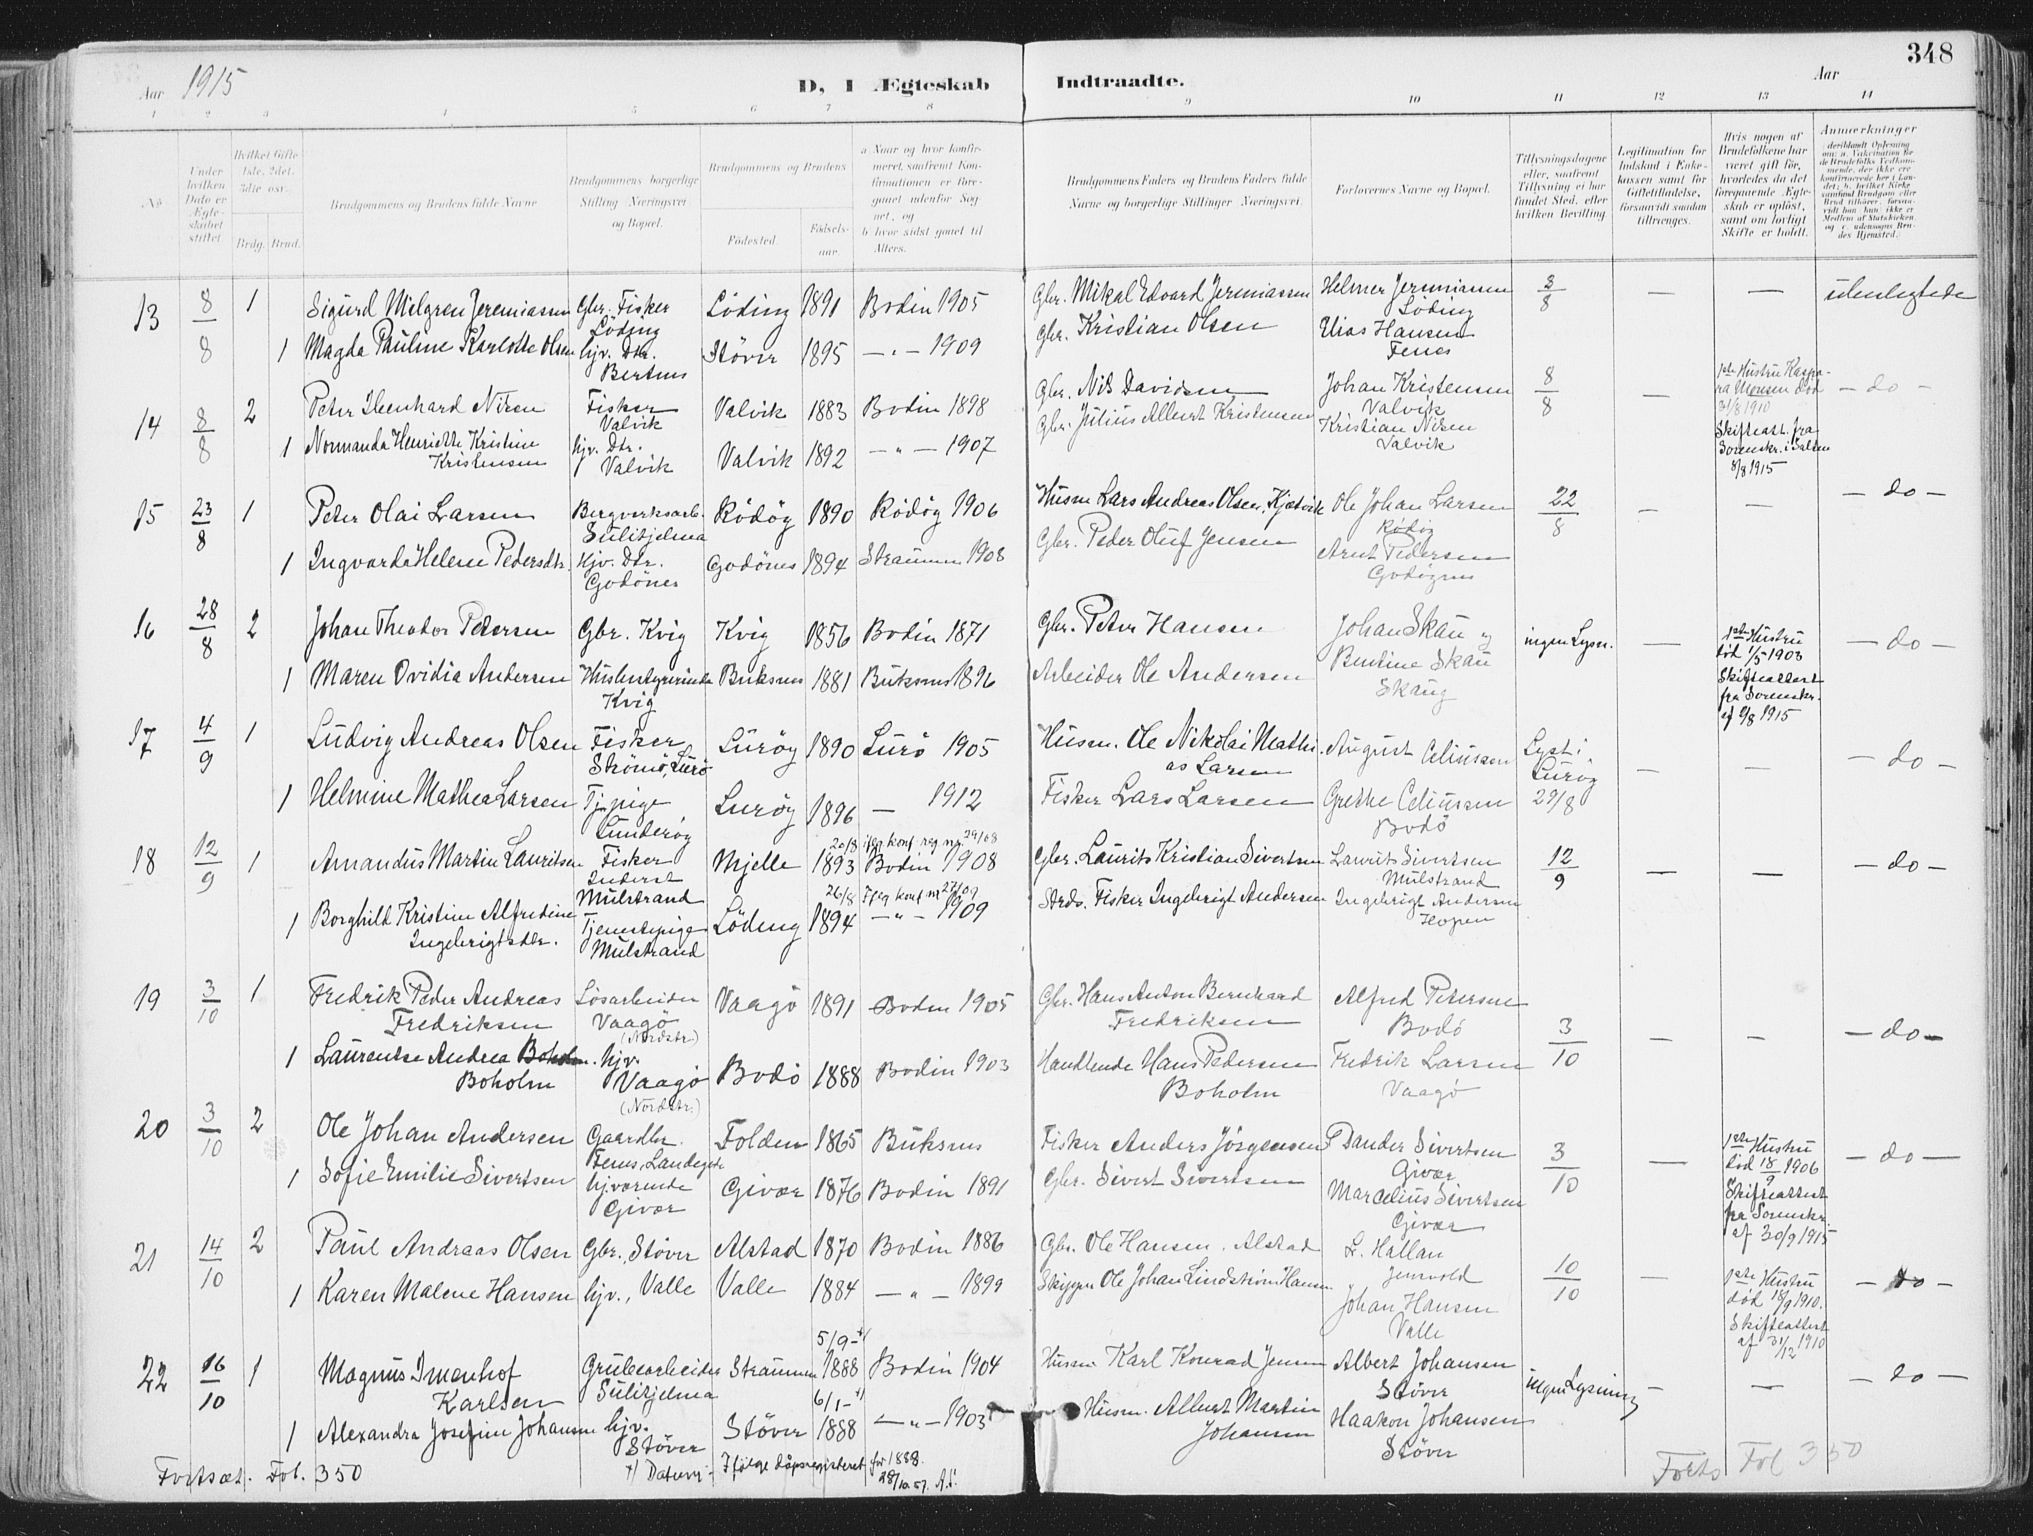 348
Aar 1915
D, I Ægteskab Indtraadte.
Aar
1 2 3 4 5 6 7 8 9 10 11 12 13 14
No
Under hvilken Dato er Ægteskabet stiftet
Hvilket Gifte 1ste, 2det, 3die osv.
Brdg. Brud.
Brudgommens og Brudens fulde Navne
Brudgommens borgerlige Stilling Næringsvei og Bopæl.
Brudgommens og Brudens
Fødested.
Fødselsaar.
a Naar og hvor konfirmeret, saafremt Konfirmationen er foregaaet udenfor Sognet, og
b hvor sidst gaaet til Alters.
Brudgommens Faders og Brudens Faders fulde Navne og borgerlige Stillinger Næringsvei
Forlovernes Navne og Bopæl.
Tillysningsdagene eller, saafremt Tillysning ei har fundet Sted, efter hvilken Bevilling
Legitimation for Indskud i Enkekassen samt for Giftetilladelse, forsaavidt saadan tiltrænges.
Hvis nogen af Brudefolkene har været gift før, hvorledes da det foregaaende Ægteskab er opløst, samt om lovligt Skifte er holdt.
Anmærkninger
13 8/8 1 Sigurd Milgren Jeremiassen Gbr. Fisker Löding Löding 1891 Bodin 1905 Gbr. Mikal Edvard Jeremiassen Helmer Jeremiassen Löding 3/8 — — ubeslegtede
1 Magda Pauline Karlotte Olsen hjv. Dtr. Bertnes Stöver 1895 — " — 1909 Gbr. Kristian Olsen Elias Hansen Fenes
14 8/8 2 Peter Ibenhard Nilsen Fisker Valvik Valvik 1883 Bodin 1898 Gbr. Nils Davidsen Johan Kristensen Valvik 8/8 — 1ste Hustru Kaspara Monsen död 31/8 1910 Skifteatt. fra Sorenskr. i Salten 8/8 1915 — do —
1 Normanda Henriette Kristine Kristensen hjv. Dtr. Valvik Valvik 1892 — " — 1907 Gbr. Julius Albert Kristensen Kristian Nilsen Valvik
15 23/8 1 Peter Olai Larsen Bergverksarb. Sulitjelma Rödög 1890 Rödög 1906 Husm Lars Andreas Olsen, Kjætvik Ole Johan Larsen Rödög 22/8 — — — do —
1 Ingvarda Helene Pedersdtr. Hjv. Dtr. Godönes Godönes 1894 Straumen 1908 Gbr. Peder Oluf Jensen Arnt Pedersen Godögnes
16 28/8 2 Johan Theodor Petersen Gbr. Kvig Kvig 1856 Bodin 1871 Gbr. Peter Hansen Johan Skau og ingen Lysn. — 1ste Hustru död 1/5 1903 Skifteattest fra Sorenskr. af 9/8 1915 — do —
1 Maren Ovidia Andersen Husbestyrerinde Kvig Buksnes 1881 Buksnes 1896 Arbeider Ole Andersen Bentine Skau Skaug
17 4/9 1 Ludvig Andreas Olsen Fisker Strömö, Lurö Luröy 1890 Lurö 1905 Husm. Ole Nikolai Mathias Larsen August Celiussen Lyst i Luröy 29/8 — — — do —
1 Helmine Mathea Larsen Tj.pige Sunderöy Luröy 1896 — 1912 Fisker Lars Larsen Grethe Celiussen Bodö
18 12/9 1 Amandus Martin Lauritsen Fisker Inderst Mulstrand Mjelle 20/8 1893 ifgr. konf reg nr. 29/08 Bodin 1908 Gbr. Laurits Kristian Sivertsen Laurits Sivertsen Mulstrand 12/9 — — — do —
1 Borghild Kristine Alfredine Ingebrigtsdtr. Tjenestepige Mulstrand Löding 26/8 1894 Iflg konf nr 27/09 — " — 1909 Strds. Fisker Ingebrigt Andersen Ingebrigt Andersen Hopen
19 3/10 1 Fredrik Peder Andreas Fredriksen Lösarbeider Vaagö (Nordstr.) Vaagö 1891 Bodin 1905 Gbr. Hans Anton Bernhard Fredriksen Alfred Petersen Bodö 3/10 — — — do —
1 Laurentse Andrea Boholm. Boholm hjv. Vaagö (Nordstr.) Bodö 1888 Bodin 1903 Handlende Hans Pedersen Boholm Fredrik Larsen Vaagö
20 3/10 2 Ole Johan Andersen Gaardbr. Fenes, Landegode Folden 1865 Buksnes Fisker Anders Jörgensen Pdander Sivertsen Givær 3/10 — 1ste Hustru död 18/9 1906 Skifteattest fra Sorenskr. af 30/9 1915 — do —
1 Sofie Emilie Sivertsen hjværende Givær Givær 1876 Bodin 1891 Gbr. Sivert Sivertsen Marcelius Sivertsen Givær
21 14/10 2 Paul Andreas Olsen Gbr. Stöver Alstad 1870 Bodin 1886 Gbr. Ole Hansen, Alstad L. Hallan Jensvold 10/10 — 1ste Hustru död 18/9 1910. Skifteattest af 31/12 1910 — do —
1 Karen Malene Hansen hjv., Valle Valle 1884 — " — 1899 Skipper Ole Johan Lindström Hansen Johan Hansen Valle
22 16/10 1 Magnus Imenhof Karlsen Grubearbeider Sulitjelma Straumen 5/9-+/ 1888 Bodin 1904 Husm. Karl Konrad Jensen Albert Johansen Stöver ingen Lysning — — — do —
1 Alexandra Josefine Johansen hjv. Stöver Stöver 6/1-+/ 1888 — " — 1903 Husm. Albert Martin Johansen Haakon Johansen Stöver
Fortsæt. Fol. 350 +/ Datoer Ifölge dåpsregisteret for 1888. 28/10.57. A.
Forts Fol 350